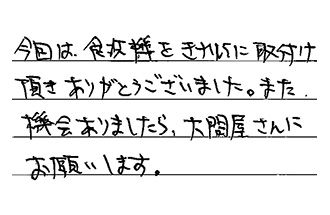 今回は、食洗機をきれいに取付け
頂きありがとうございました。また、
機会ありましたら、大問屋さんに
お願いします。